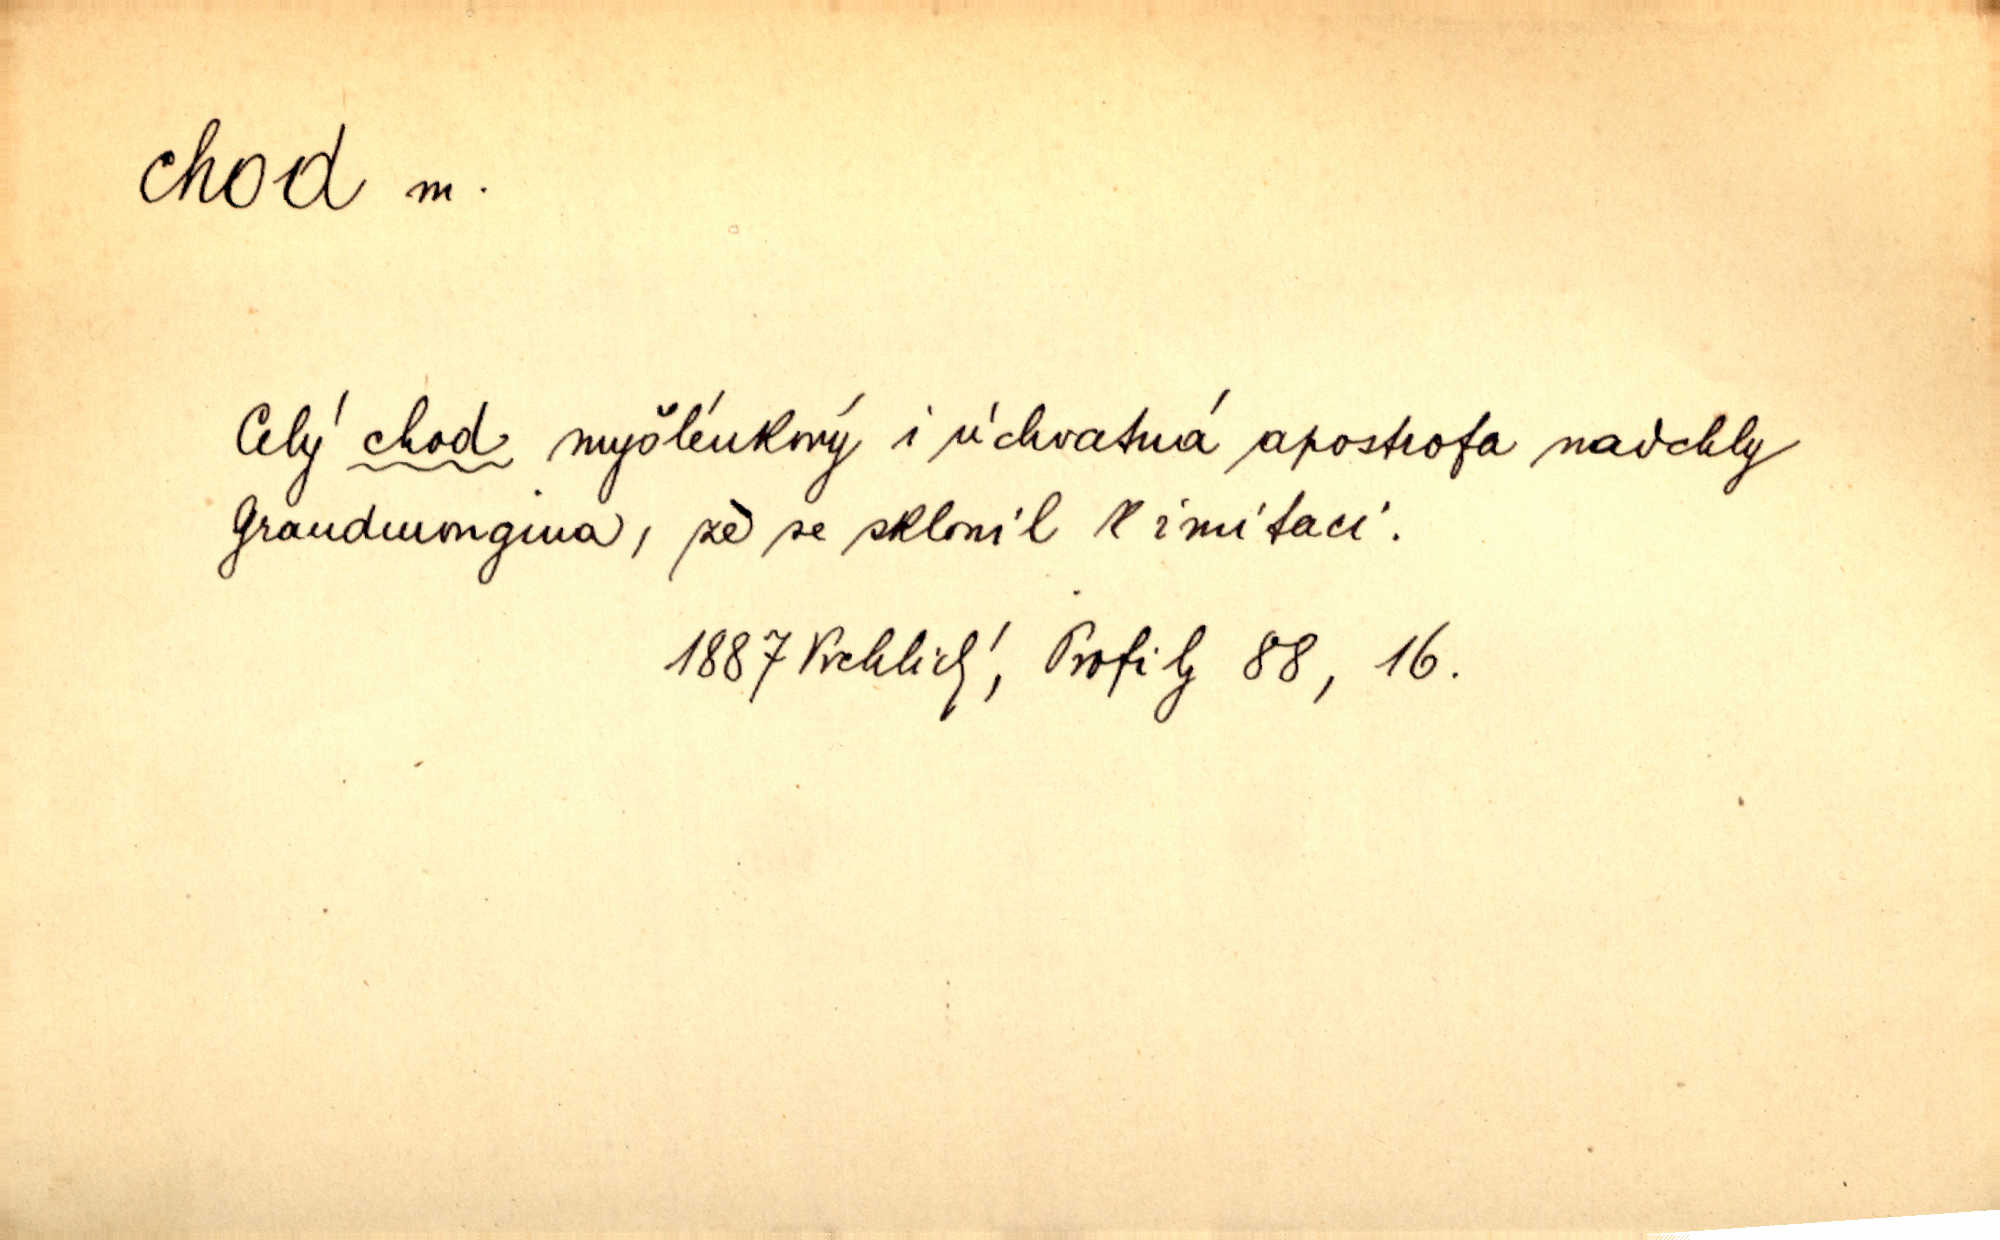 chod m.
Celý chod myšlénkový i úchvatná apostrofa nadchly
Grandmongina, že se sklonil k imitaci.
1887 Vrchlický, Profily 88, 16.